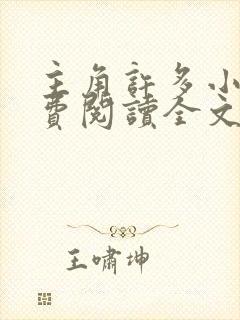 主角許多小
費閱讀全文
王嘯坤